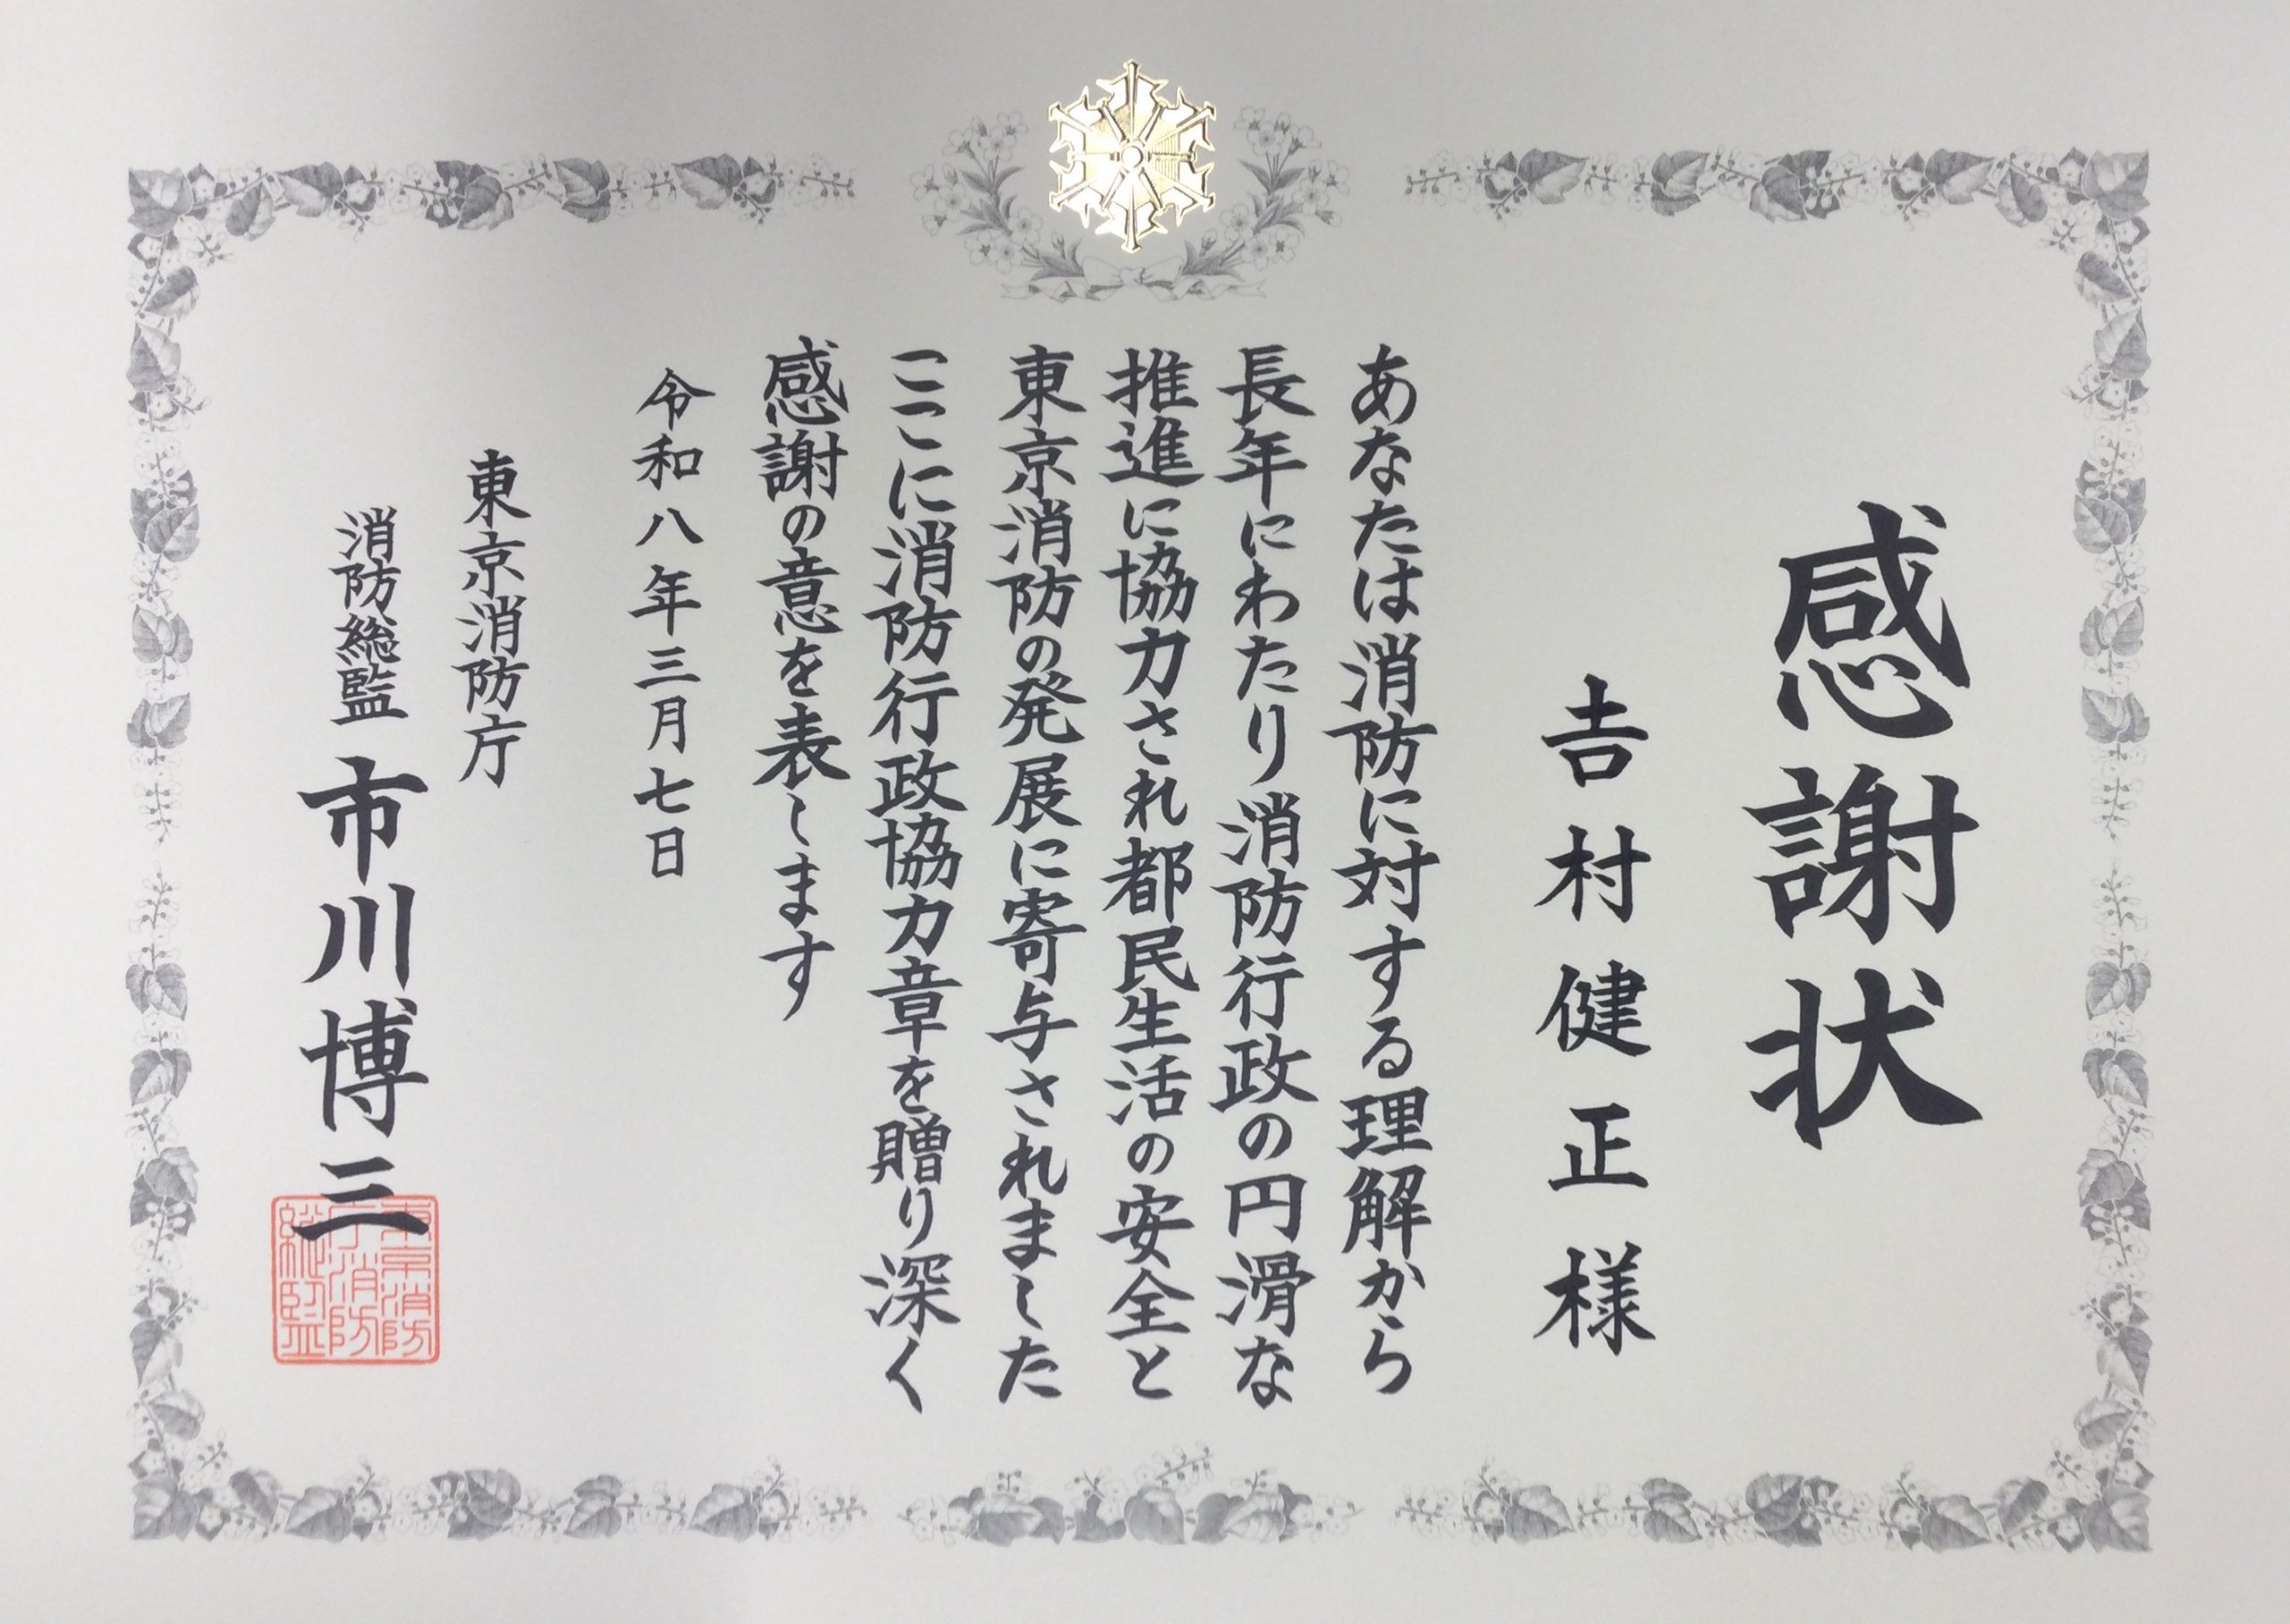 感謝状
𠮷村健正様
あなたは消防に対する理解から
長年にわたり消防行政の円滑な
推進に協力され都民生活の安全と
東京消防の発展に寄与されました
ここに消防行政協力章を贈り深く
感謝の意を表します
令和八年三月七日
東京消防庁
消防総監 市川博三